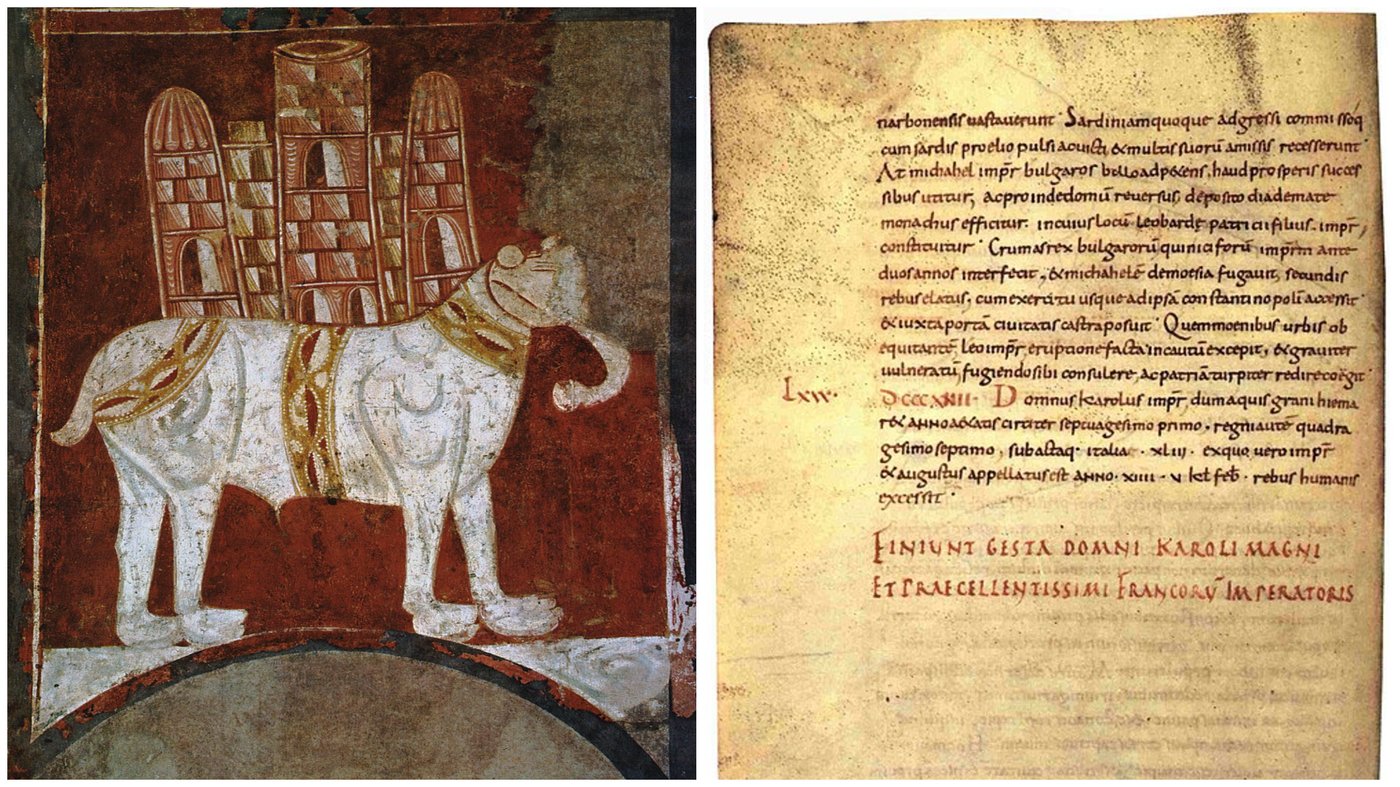 narbonensis uastauerunt · Sardiniam quoque adgressi commisso q;
cum sardis proelio pulsi ac uicti & multis suorū amissis recesserunt ·
At michahel imp̄r bulgaros bello adp&ens, haud prosperis succes
sibus utitur, ac proinde domū reuersus, deposito diademate
monachus efficitur. in cuius locū leo bardę patricii filius. imp̄r,
constituitur · Crumas rex bulgarorū qui niciforū imp̄rm ante
duos annos interfecit, & michahelē de moesia fugauit, secundis
rebus elatus, cum exercitu usque ad ipsā constantinopolī accessit ·
& iuxta portā ciuitatis castra posuit · Quem moenibus urbis ob
equitantē, leo imp̄r eruptione facta incautū excepit, & grauiter
uulneratū fugiendo sibi consulere, ac patriā turpiter redire coegit ·
Lxx. DCCCXIIII · Domnus Karolus imp̄r dum aquisgrani hiema
r&, anno a&atis circiter septuagesimo primo, regni autē quadra
gesimo septimo, subactaq· italiae · xliii · ex quo uero imp̄r
& augustus appellatus est anno · xiiii · v kl feb̄ · rebus humanis
excessit ·
FINIUNT GESTA DOMNI KAROLI MAGNI
ET PRAECELLENTISSIMI FRANCORŪ IMPERATORIS